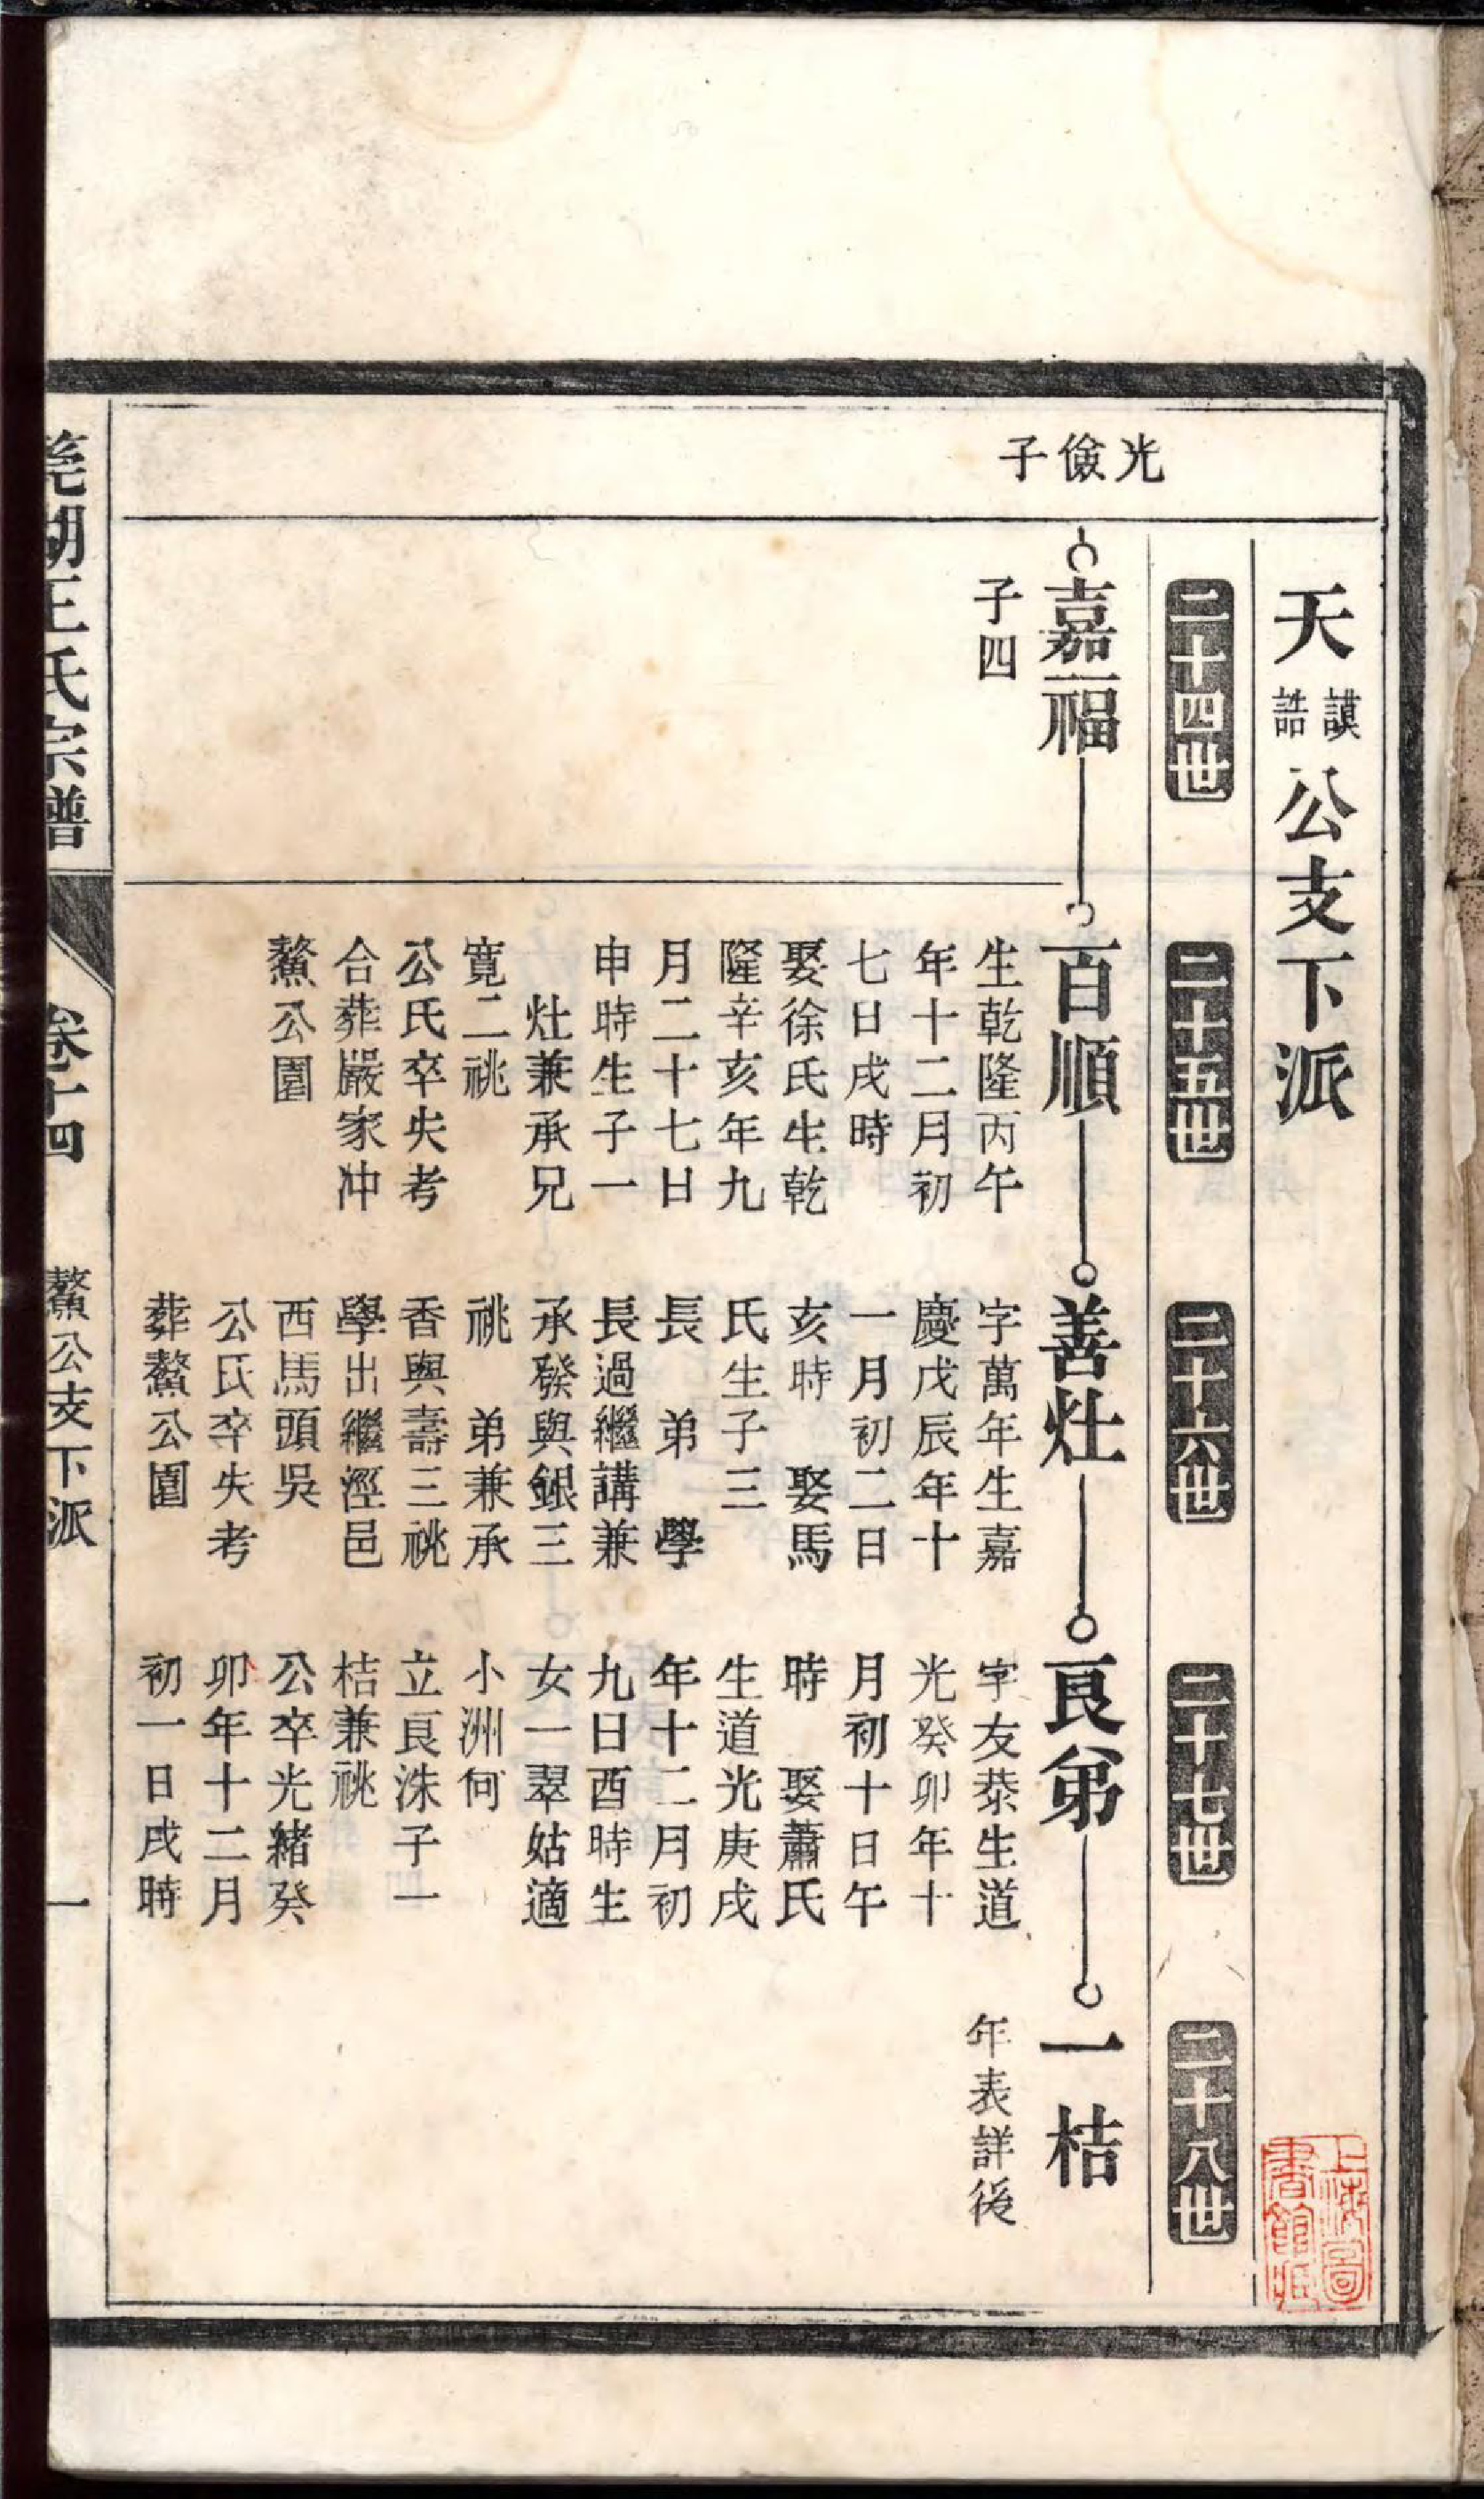 天謨誥公支下派
二十四世
二十五世
二十六世
二十七世
二十八世
光儉子
嘉福
子四
百順
生乾隆丙午
年十二月初
七日戌時
娶徐氏生乾
隆辛亥年九
月二十七日
申時生子一
灶兼承兄
寛二祧
公氏卒失考
合葬嚴家冲
鰲公園
善灶
字萬年生嘉
慶戊辰年十
一月初二日
亥時 娶馬
氏生子三
長 弟 學
長過繼講兼
承發與銀三
祧 弟兼承
香與壽三祧
學出繼涇邑
西馬頭吳
公氏卒失考
葬鰲公園
良弟
字友恭生道
光癸卯年十
月初十日午
時 娶蕭氏
生道光庚戌
年十二月初
九日酉時生
女一翠姑適
小洲何
立良洙子一
桔兼祧
公卒光緒癸
卯年十二月
初一日戌時
一桔
年表詳後
上海圖
書館藏
蕪湖王氏宗譜
卷十四
鰲公支下派
一